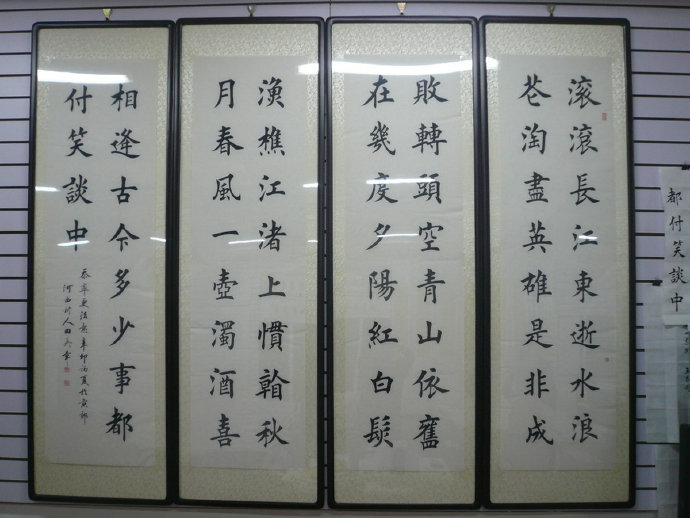 滚滚長江東逝水浪
花淘盡英雄是非成
敗轉頭空青山依舊
在幾度夕陽紅白髮
漁樵江渚上慣看秋
月春風一壺濁酒喜
相逢古今多少事都
付笑談中
辛卯
人田
都付笑談中